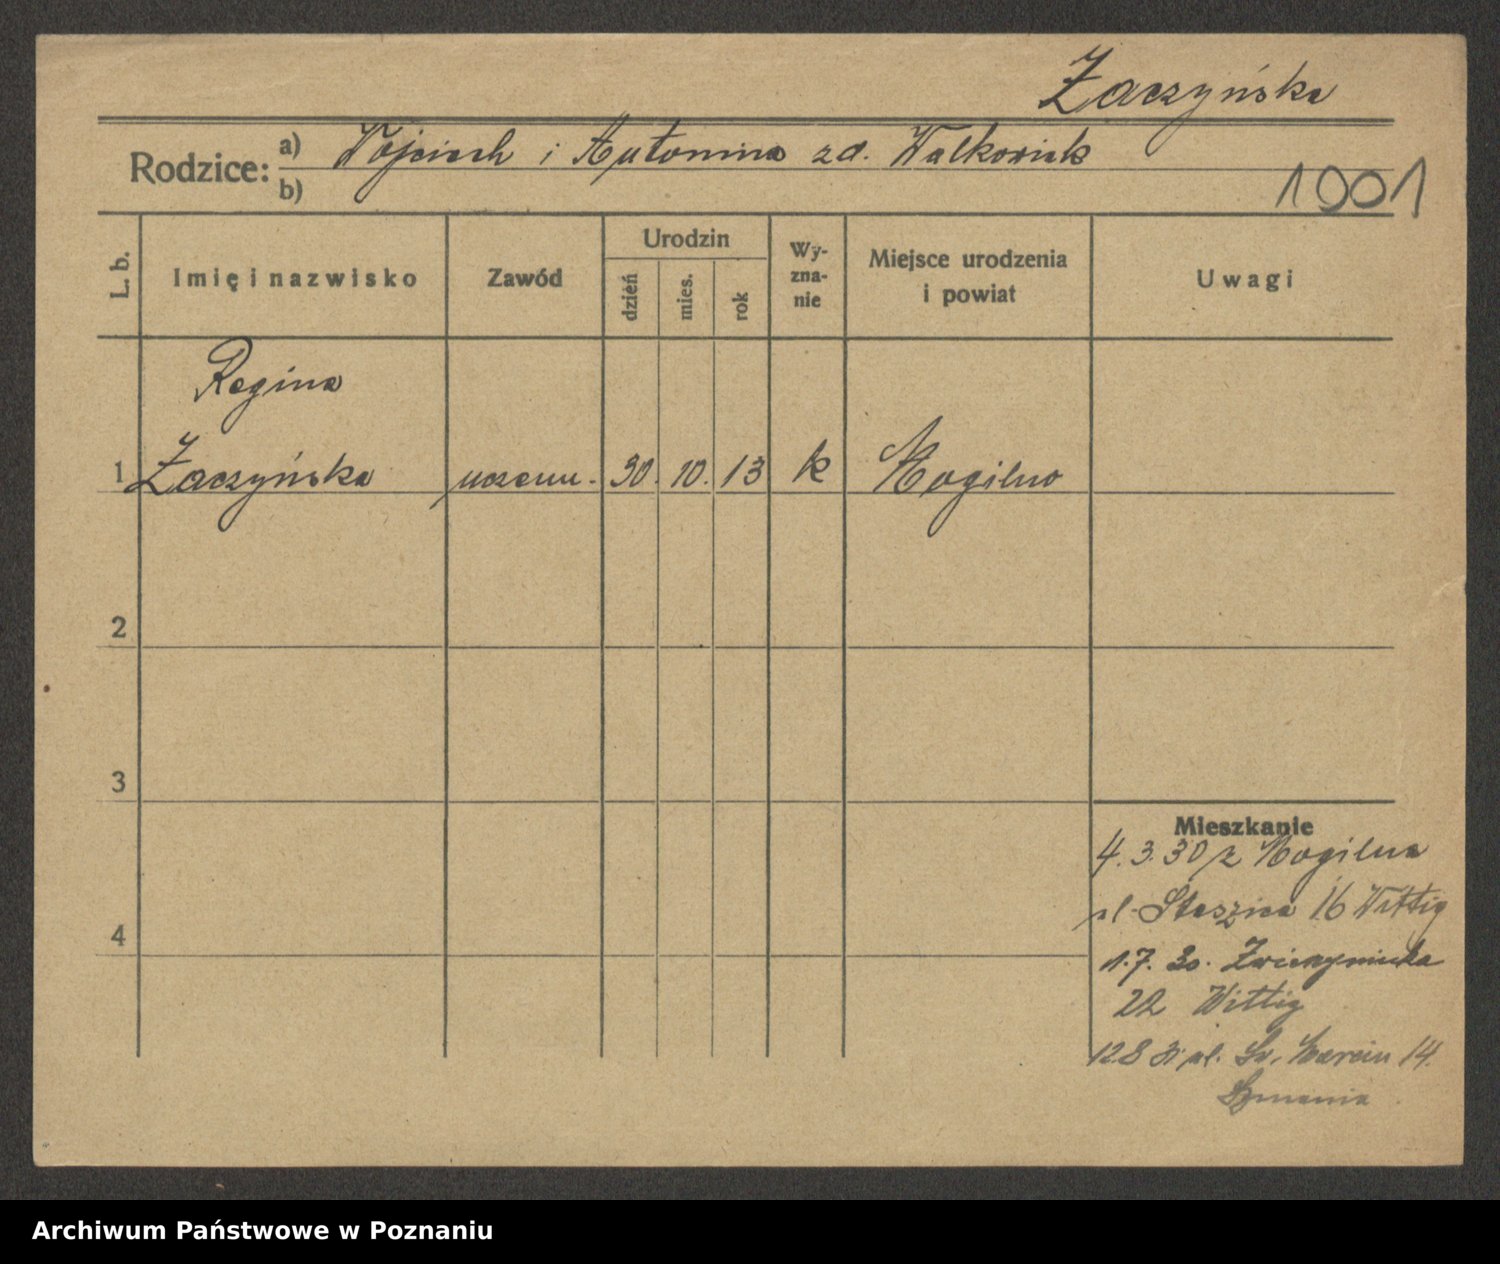 Żaczyńska
Rodzice: a) Wojciech i Antonina zd. Walkowiak
b)
1001
L. b.
Imię i nazwisko
Zawód
Urodzin
dzień
mies.
rok
Wy-
zna-
nie
Miejsce urodzenia
i powiat
Uwagi
Regina
1 Żaczyńska uczenn. 30. 10. 13 k Mogilno
2
3
4
Mieszkanie
4.3.30 z Mogilna
pl. Staszica 16 Wittig
1.7.30. Zwierzyniecka
22 Wittig
12 8 31 ul. Św. Marcin 14.
Archiwum Państwowe w Poznaniu